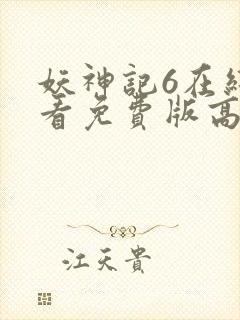 妖神記6在
看免費版高
江天貴